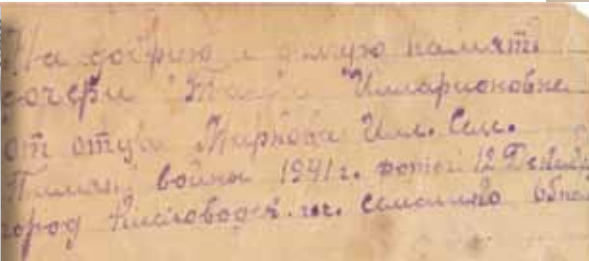 На добрую и долгую память
дочери Таисе Илларионовне
от отца Маркова Илл. Сем.
Память войны 1941 г. фото 12 Декабр
город Кисловодск.